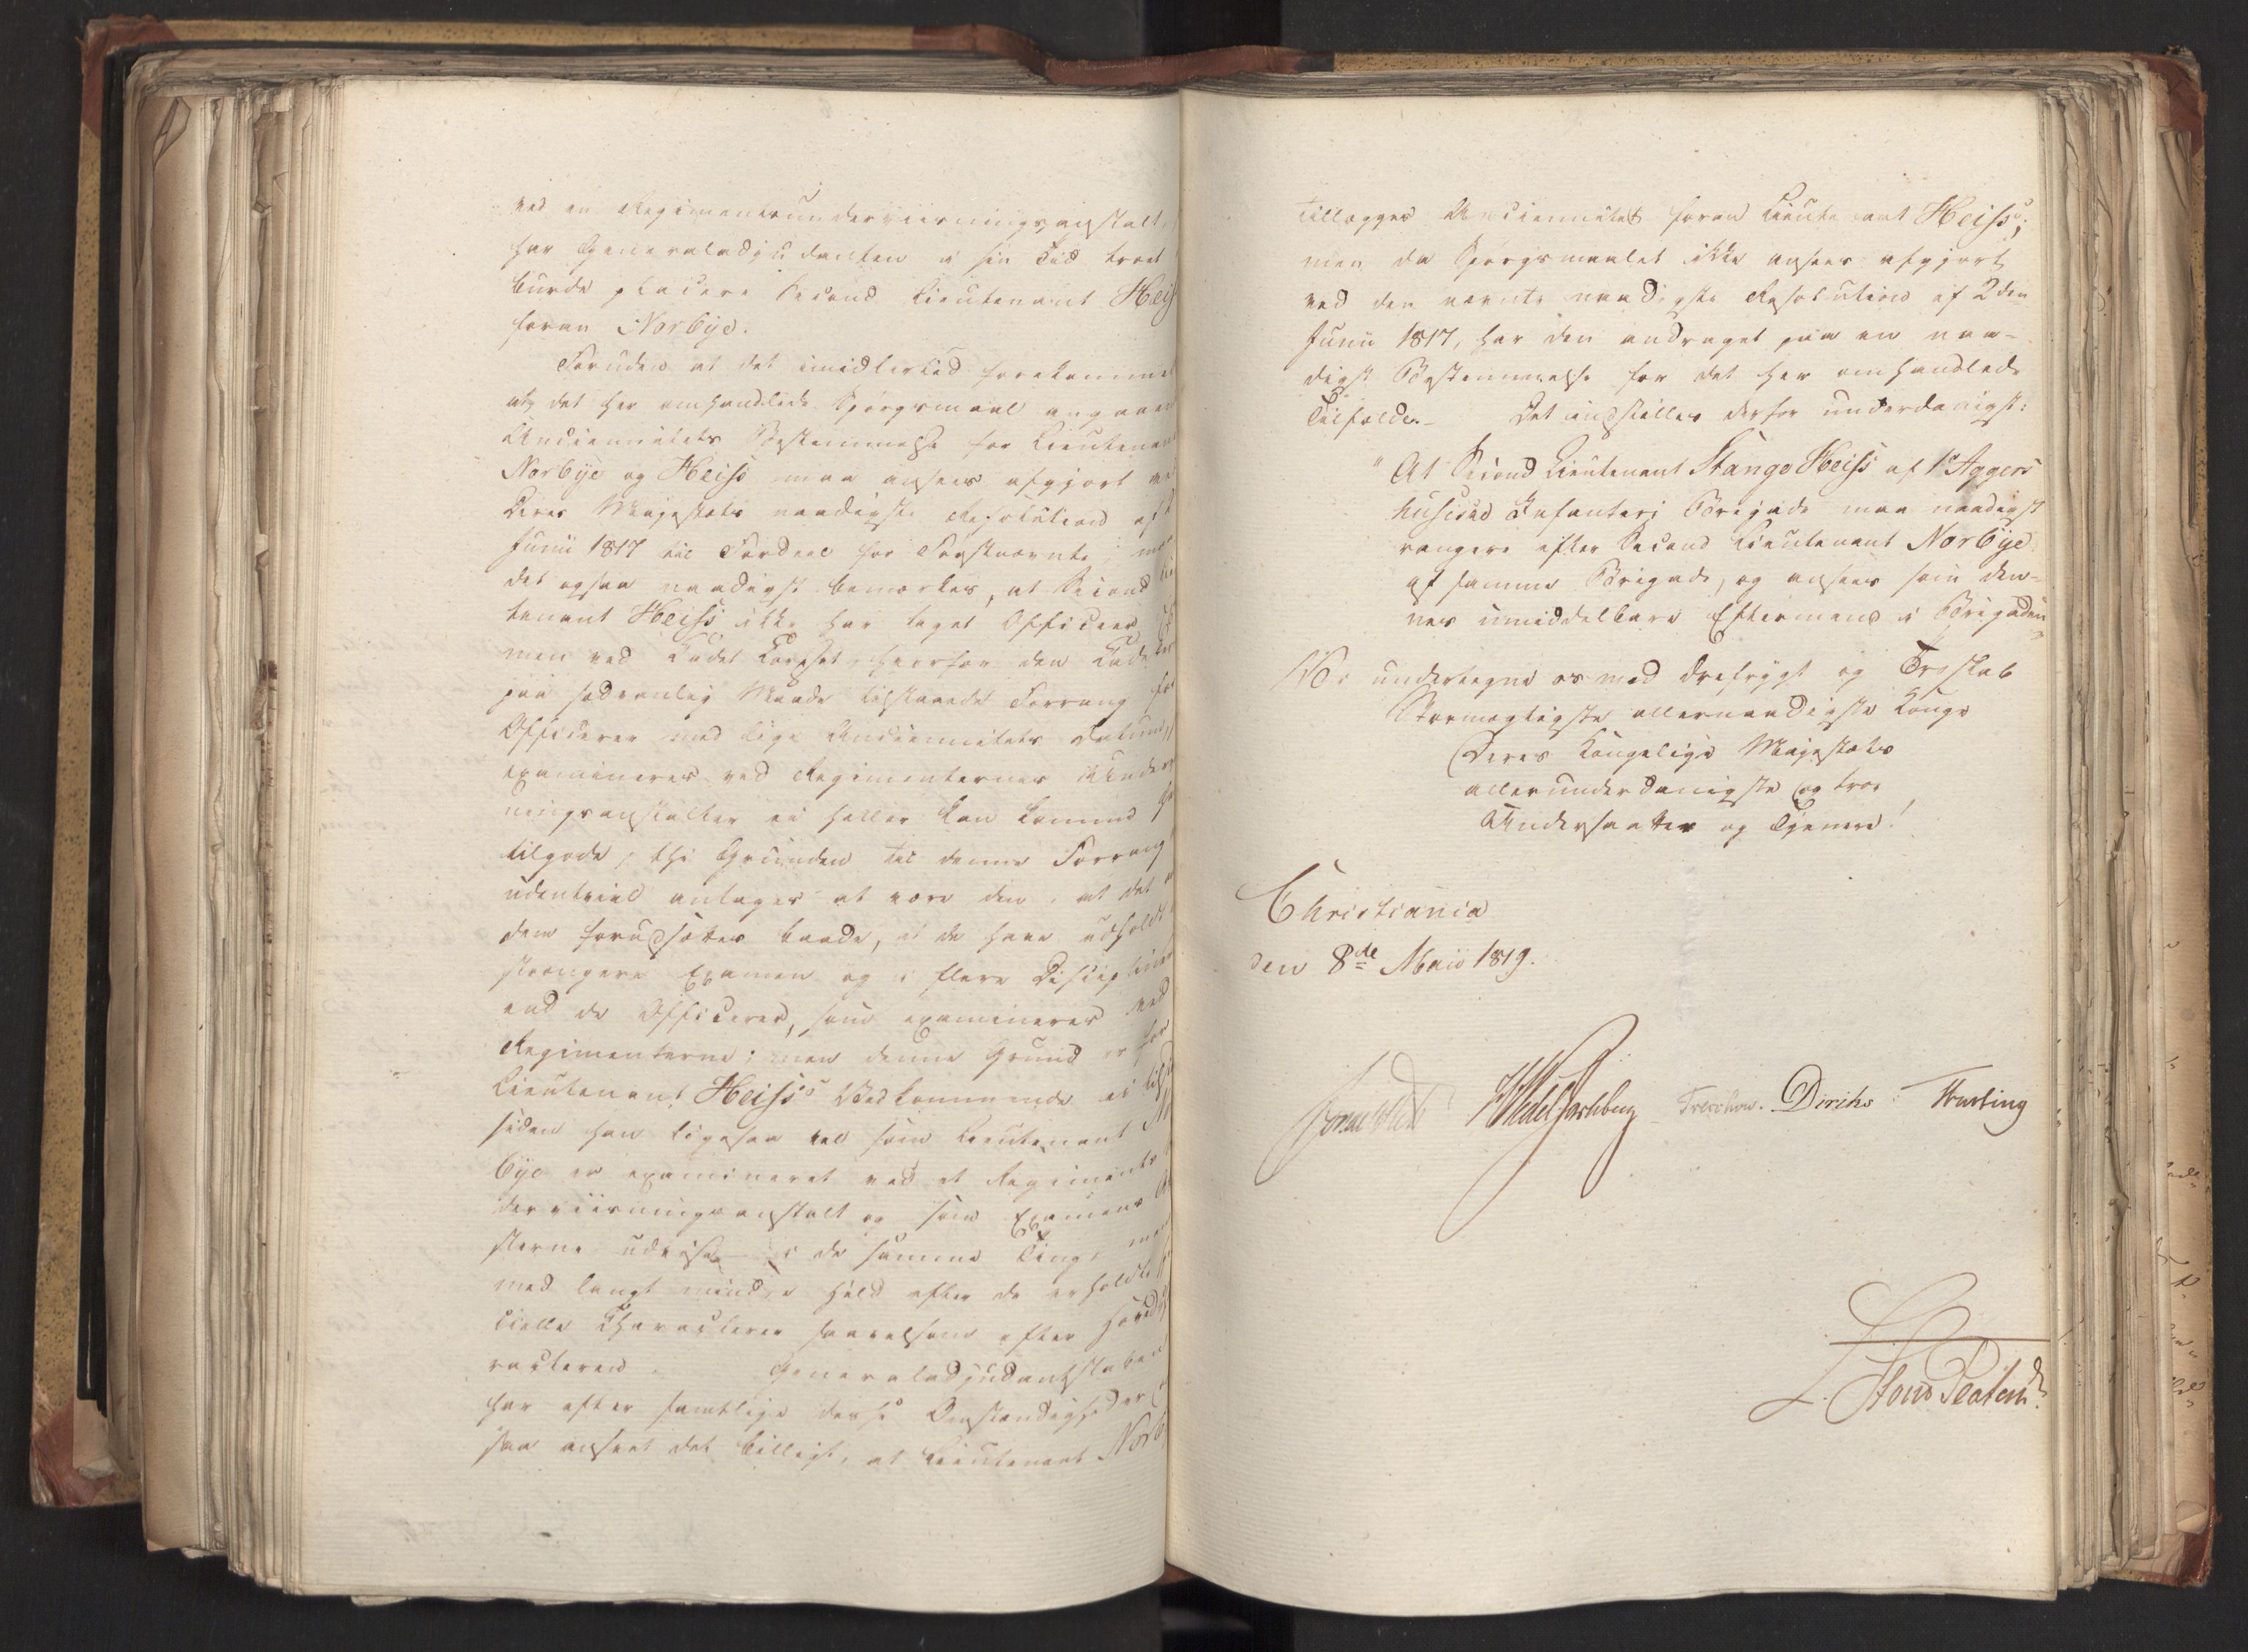 ved en Regimentsunderviisningsanstalt,
har Generaladjudanten i sin Tid troet
burde placere Second Lieutenant Heis
foran Norbye.
Foruden at det imidlertid forekommer
at det her omhandlede Spörgsmaal angaaen
Anciennitets Bestemmelse for Lieutenan
Norbye og Heiss maa ansees afgjort ve
Deres Majestæts naadigste Resolution af 2
Junii 1817 til Fordeel for Förstnævnte; maa
det ogsaa naadigst bemærkes, at Second Lieu
tenant Heiss ikke har taget Officeers
men ved Cadet Corpset, hvorfor den Cadet
paa sædvanlig Maade tilstaaede Forrang for
Officerer med lige Anciennitets Datum,
examineres ved Regimenternes Underv
ningsanstalter ei heller kan komme ha
tilgode; thi Grunden til denne Forrang
udentvivl antages at være den, at det
dem forudsættes baade, at de have udholdt
strængere Examen og i flere Discipliner
end de Officerer, som examineres ved
Regimenterne; men denne Grund er for
Lieutenant Heiss's Vedkommende ei tilst
siden han ligesaa vel som Lieutenant No
bye er examineret ved et Regiments
derviisningsanstalt og som Examens
sterne udvise i de samme Ting, men
med langt mindre Held efter de erholdte
cielle Characterer saavelsom efter Hoved
racteren. Generaladjudantstaben
har efter samtlige disse Omstændigheder
saa anseet det billigt, at Lieutenant Norb
tillægges Anciennitet foran Lieutenant Heiss;
men da Spörgsmaalet ikke ansees afgjort
ved den nævnte naadigste Resolution af 2den
Junii 1817, har den andraget paa en naa-
digst Bestemmelse for det her omhandlede
Tilfælde. Det indstilles derfor underdanigst:
"At Second Lieutenant Stange Heiss af 1e Aggers
husiske Infanteri Brigade maa naadigst
rangere efter Second Lieutenant Norbye
af samme Brigade, og ansees som den-
nes umiddelbare Eftermand i Brigaden"
Vi undertegne os med Ærefrygt og Troskab
Stormægtigste allernaadigste Konge
Deres Kongelige Majestæts
allerunderdanigste og troe
Undersaatter og Tjenere!
Christiania
den 8de Maii 1819.
Sommerhielm Wedel Jarlsberg Treschow. Diriks Krebting
L. Stoud Platou